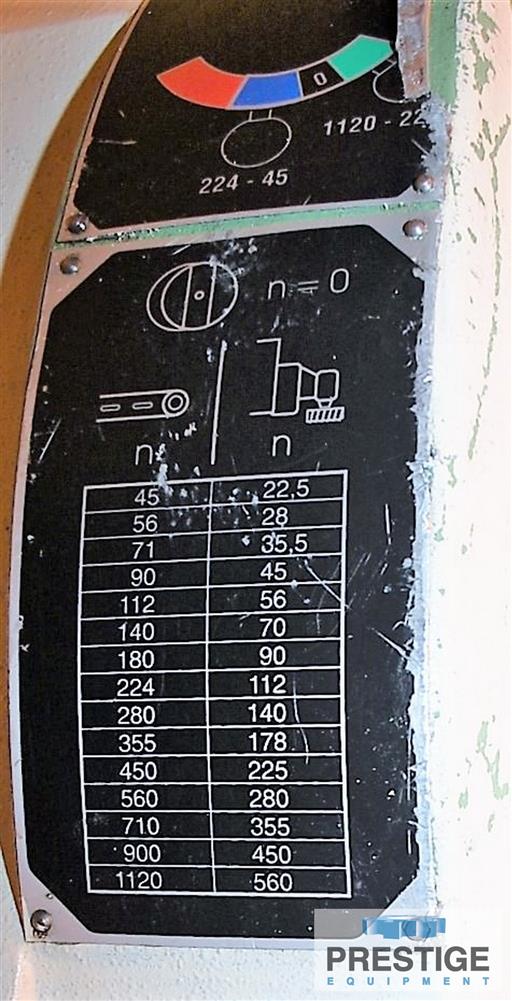 0
1120 - 22
224 - 45
n = 0
n n
45 22,5
56 28
71 35,5
90 45
112 56
140 70
180 90
224 112
280 140
355 178
450 225
560 280
710 355
900 450
1120 560
PRESTIGE
EQUIPMENT